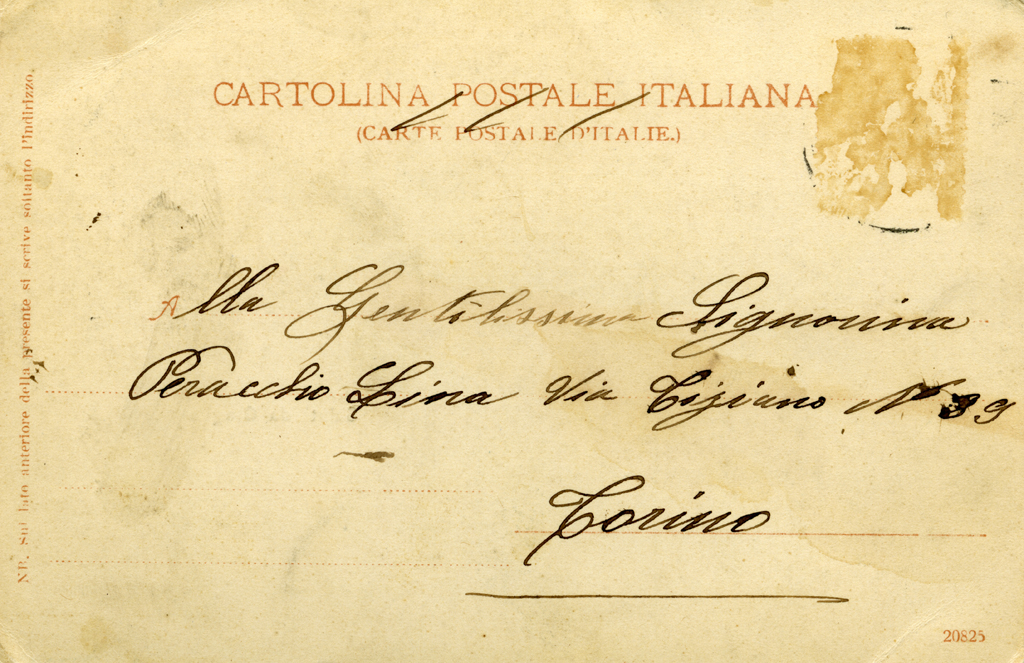 CARTOLINA POSTALE ITALIANA
(CARTE POSTALE D'ITALIE.)
Alla Gentilissima Signorina
Peracchio Lina Via Tiziano N° 39
Torino
20825
NB. Sul lato anteriore della presente si scrive soltanto l'Indirizzo.